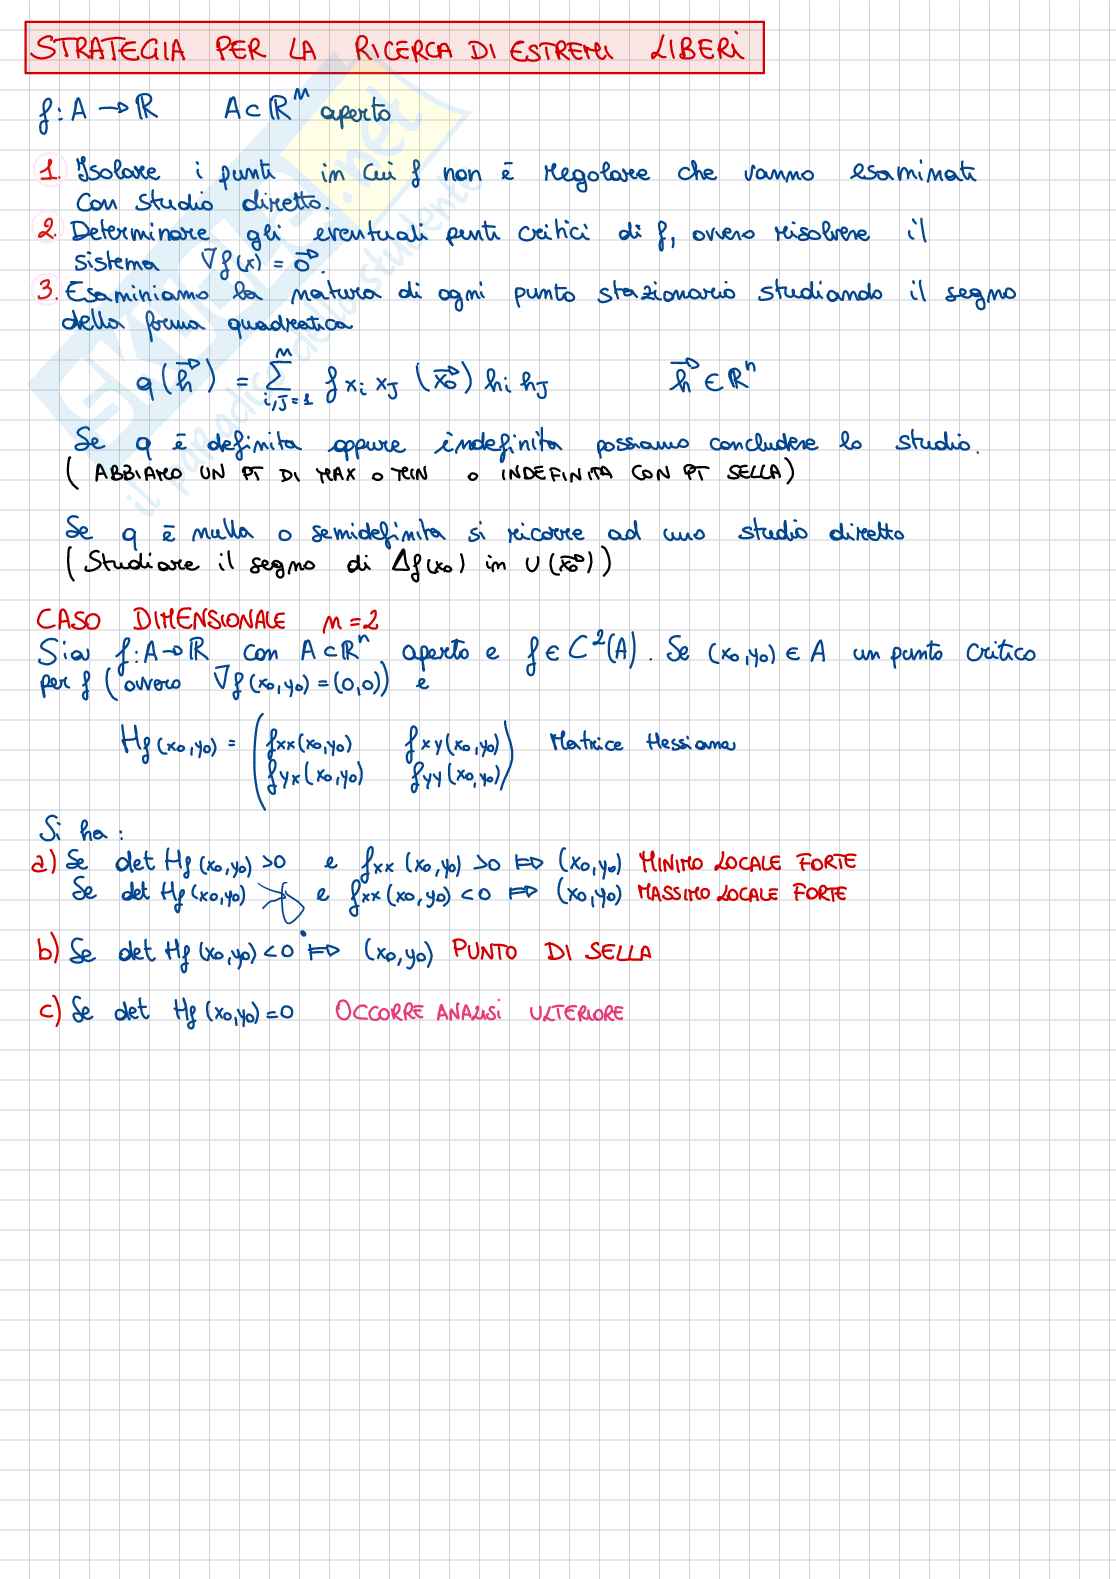 STRATEGIA PER LA RICERCA DI ESTREMI LIBERI
f: A → ℝ A ⊂ ℝⁿ aperto
1. Isolare i punti in cui f non è regolare che vanno esaminati
con studio diretto.
2. Determinare gli eventuali punti critici di f, ovvero risolvere il
sistema ∇f(x) = 0⃗.
3. Esaminiamo la natura di ogni punto stazionario studiando il segno
della forma quadratica
q(h⃗) = Σ_{i,J=1}^{n} f_{x_i x_J} (x⃗₀) h_i h_J h⃗ ∈ ℝⁿ
Se q è definita oppure indefinita possiamo concludere lo studio.
( ABBIAMO UN PT DI MAX O MIN O INDEFINITA CON PT SELLA )
Se q è nulla o semidefinita si ricorre ad uno studio diretto
( Studiare il segno di Δf(x₀) in U(x⃗₀) )
CASO DIMENSIONALE n=2
Sia f: A → ℝ con A ⊂ ℝⁿ aperto e f ∈ C²(A). Se (x₀,y₀) ∈ A un punto critico
per f (ovvero ∇f(x₀,y₀) = (0,0)) e
Hf(x₀,y₀) = ( fxx(x₀,y₀) fxy(x₀,y₀) Matrice Hessiana
fyx(x₀,y₀) fyy(x₀,y₀) )
Si ha:
a) Se det Hf(x₀,y₀) >0 e fxx(x₀,y₀) >0 ⟹ (x₀,y₀) MINIMO LOCALE FORTE
Se det Hf(x₀,y₀) > e fxx(x₀,y₀) <0 ⟹ (x₀,y₀) MASSIMO LOCALE FORTE
b) Se det Hf(x₀,y₀) <0 ⟹ (x₀,y₀) PUNTO DI SELLA
c) Se det Hf(x₀,y₀) =0 OCCORRE ANALISI ULTERIORE
SKUOLA.net